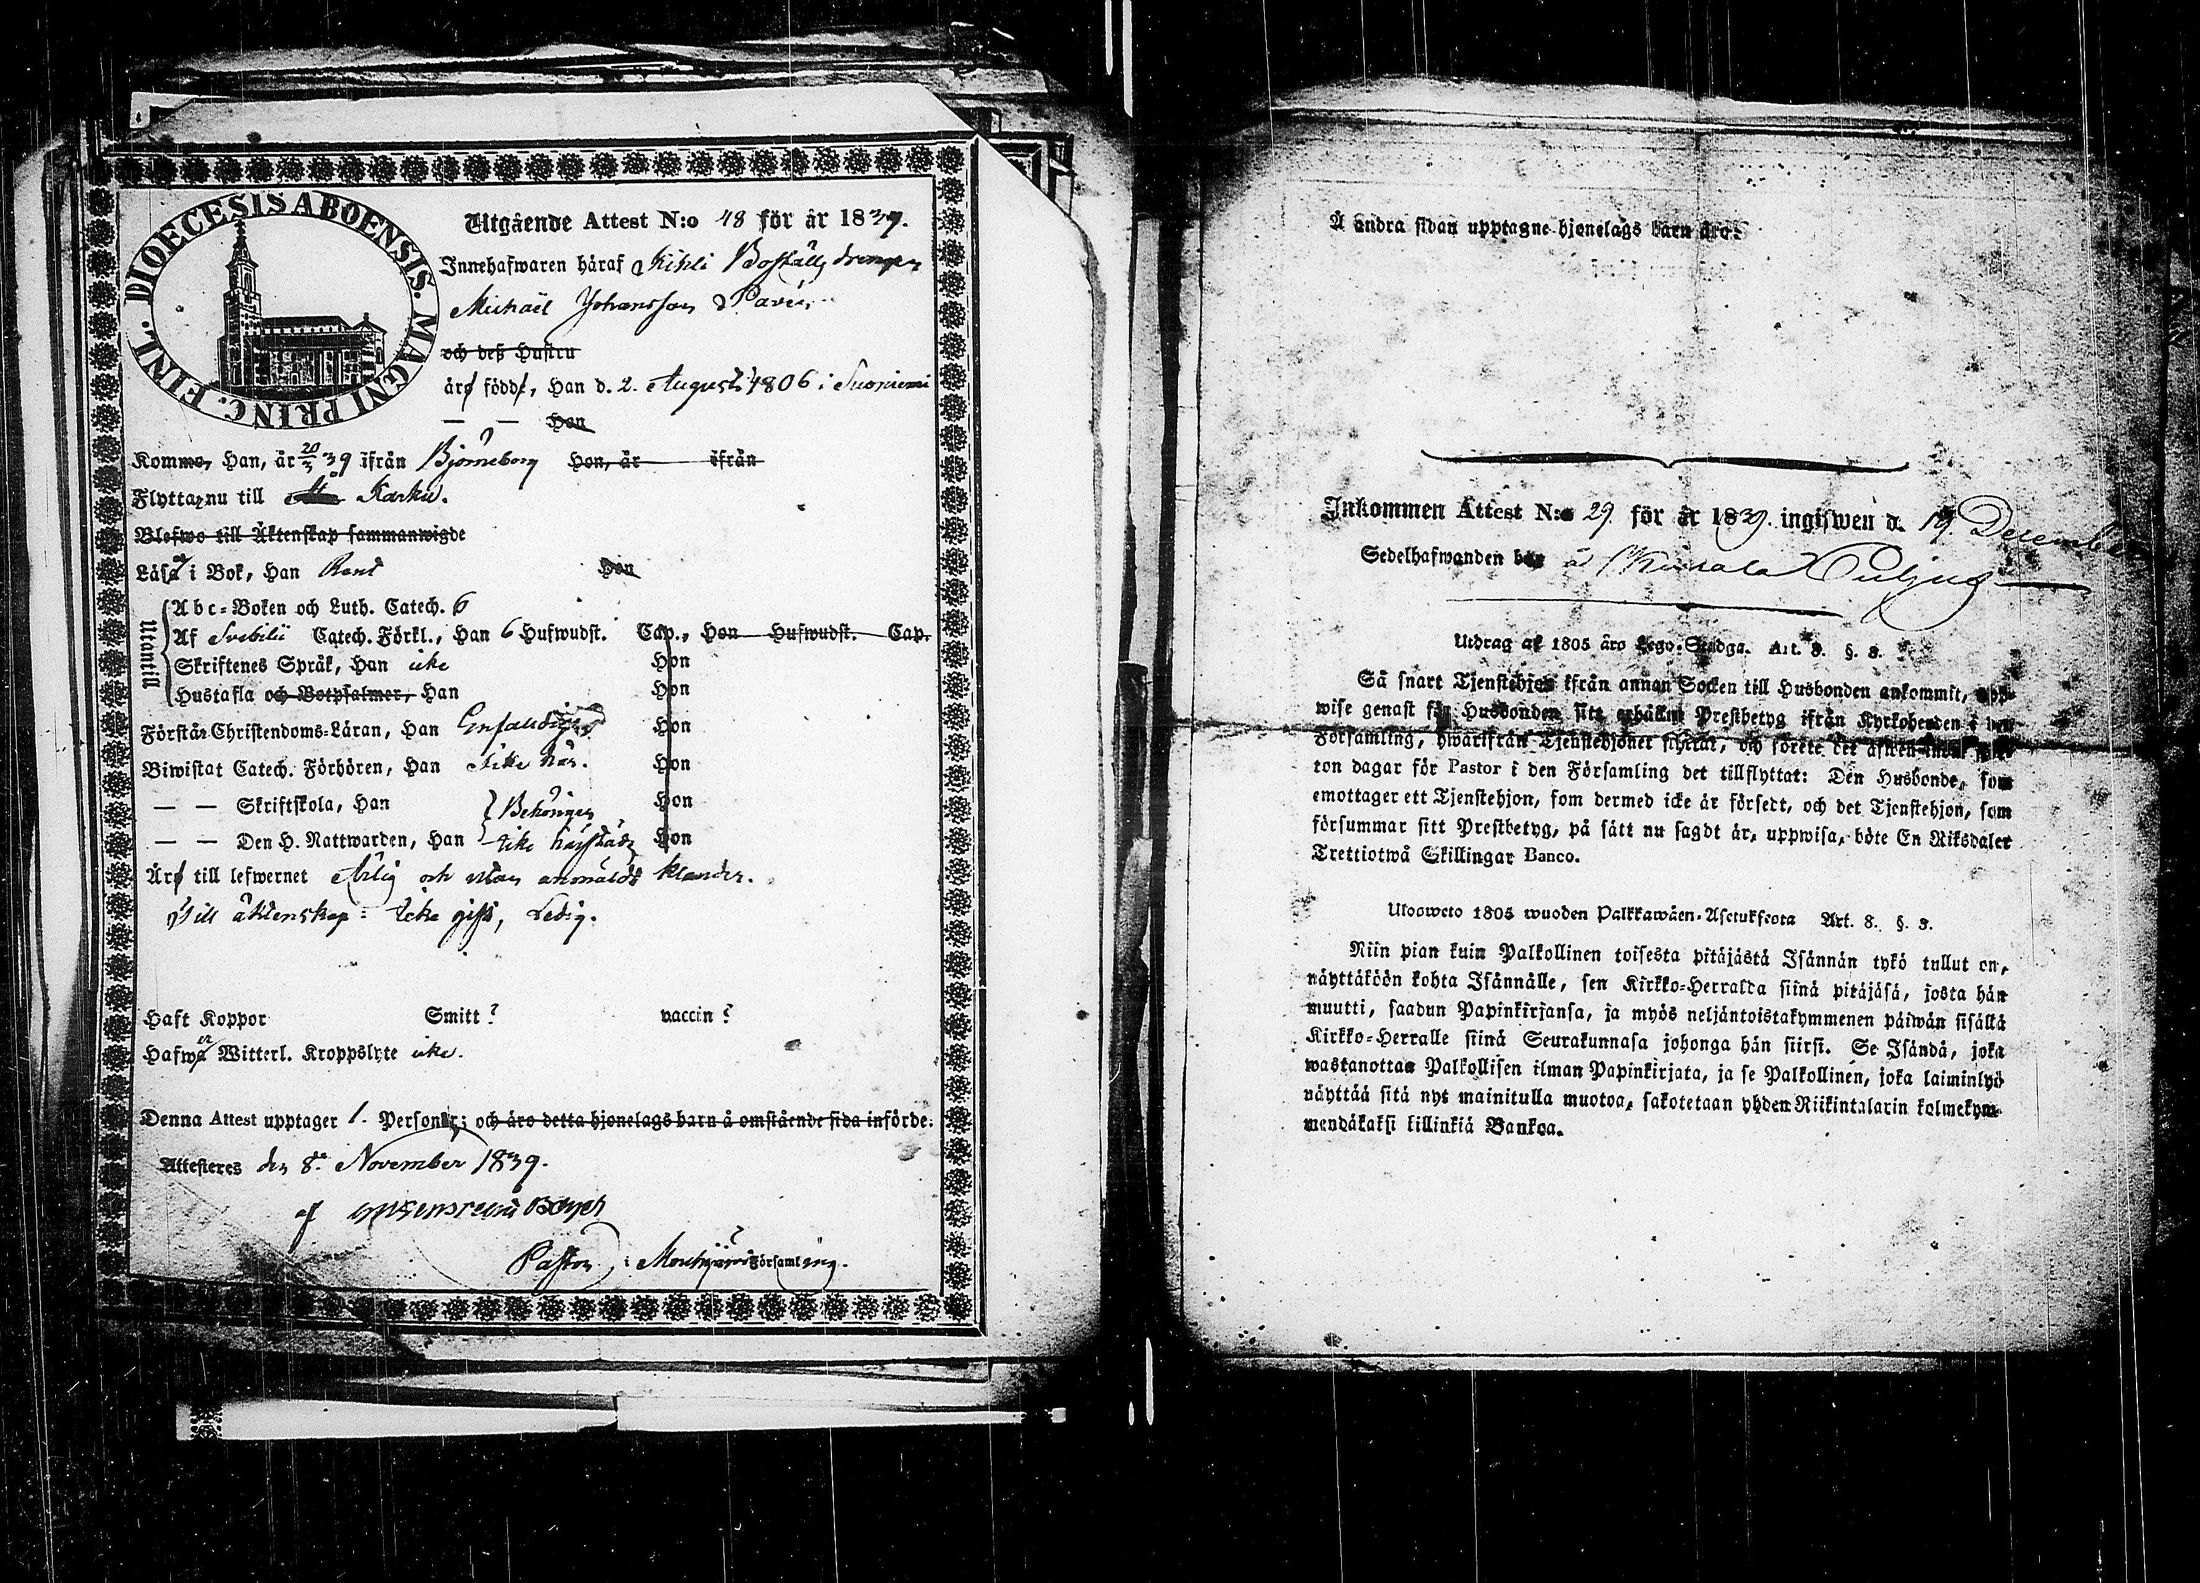 DIOECESIS ABOENSIS. MAGNI PRINC. FINL.
Utgående Attest N:o 48 för år 1839.
Innehafwaren häraf Kihli Boställs drengen
Michaël Johansson
och deß Hustru
äro födde, Han d. 2. Augusti 1806 i Suoniemi
— — Hon
Komme, Han, år 20/3 39 ifrån Björneborg Hon, år ifrån
Flytta nu till Karku.
Blefwo till Äktenskap sammanwigde
Läsa i Bok, Han Rent Hon
Utantill
Abc-Boken och Luth. Catech. 6
Af Svebilii Catech. Förkl., Han 6 Hufwudst. Cap., Hon Hufwudst. Cap.
Skriftenes Språk, Han icke Hon
Hustafla och Botpsalmer, Han Hon
Förstår Christendoms-Läran, Han Enfaldigt Hon
Biwistat Catech. Förhören, Han icke här. Hon
— — Skriftskola, Han Behörigen Hon
— — Den H. Nattwarden, Han icke härstädes Hon
Äro till lefwernet Ärlig och utan anmäldt klander.
Till äktenskap: Icke gift, Ledig.
Haft Koppor Smitt? vaccin?
Hafwa Witterl. Kroppslyte icke.
Denna Attest upptager 1. Personer; och äro detta hjonelags barn å omstående sida införde.
Attesteres den 8de November 1839.
af
Pastor i Mouhijärvi Församling.
Å andra sidan upptagne hjonelags barn äro:
Inkommen Attest N:o 29. för år 1839. ingifwen d. 19. December
Sedelhafwanden bor å
Utdrag af 1805 års Lego-Stadga. Art. 8. §. 3.
Så snart Tjenstehjon ifrån annan Socken till Husbonden ankommit, upp-
wise genast för Husbonden sitt erhållne Prestbetyg ifrån Kyrkoherden i den
Församling, hwarifrån Tjenstehjonet flyttat, och förete det äfven inom fjor-
ton dagar för Pastor i den Församling det tillflyttat: Den Husbonde, som
emottager ett Tjenstehjon, som dermed icke är försedt, och det Tjenstehjon, som
försummar sitt Prestbetyg, på sätt nu sagdt är, uppwisa, böte En Riksdaler
Trettiotwå Skillingar Banco.
Ulosweto 1805 wuoden Palkkawäen-Asetuksesta Art. 8. §. 3.
Niin pian kuin Palkollinen toisesta pitäjästä Isännän tykö tullut on,
näyttäköön kohta Isännälle, sen Kirkko-Herralda siinä pitäjäsä, josta hän
muutti, saadun Papinkirjansa, ja myös neljäntoistakymmenen päiwän sisällä
Kirkko-Herralle siinä Seurakunnasa johonga hän siirsi. Se Isändä, joka
wastanottaa Palkollisen ilman Papinkirjata, ja se Palkollinen, joka laiminlyö
näyttää sitä nyt mainitulla muotoa, sakotetaan yhden Riikintalarin kolmekym-
mendäkaksi killinkiä Bankoa.